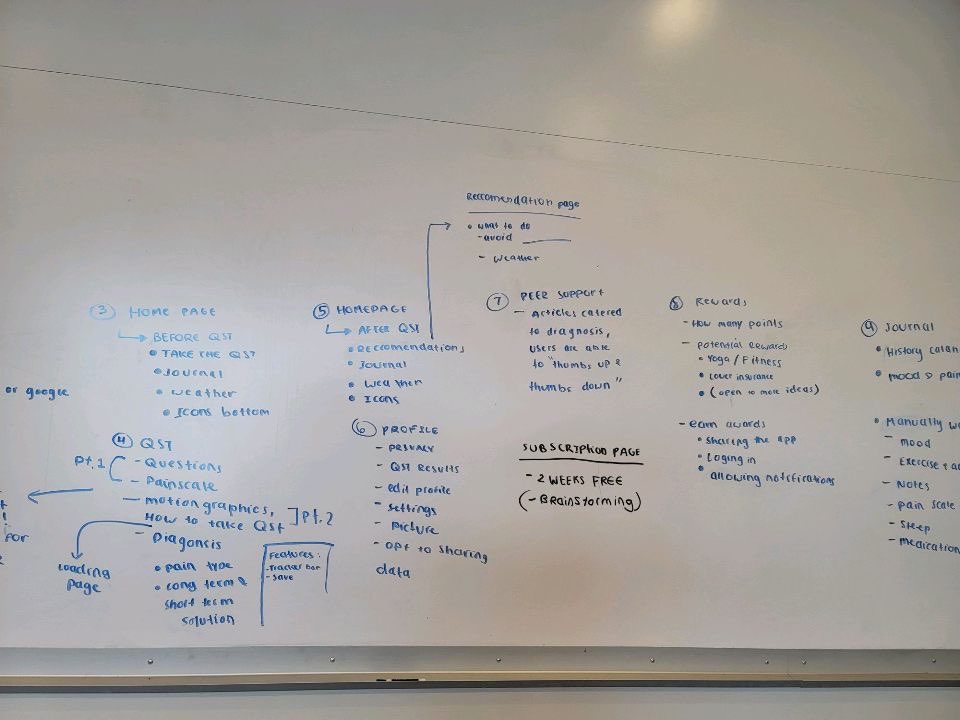 Reccomendation page
• what to do
- avoid
- weather
③ HOME PAGE
BEFORE QST
• TAKE THE QST
• Journal
• weather
• Icons bottom
or google
④ QST
Pt.1
- Questions
- Painscale
- motion graphics,
How to take QST
Pt.2
- Diagonsis
• pain type
• long term &
short term
solution
for
Loading
page
Features:
- Tracker bar
- save
⑤ HOMEPAGE
AFTER QST
• Reccomendations
• Journal
• Weather
• Icons
⑥ PROFILE
- PRIVACY
- QST Results
- edit profile
- settings
- picture
- opt to sharing
data
⑦ PEER SUPPORT
- Articles catered
to diagnosis,
users are able
to "thumbs up &
thumbs down"
SUBSCRIPTION PAGE
- 2 WEEKS FREE
(- BRainstorming)
⑧ Rewards
- How many points
- potential Rewards
• Yoga / Fitness
• Lower insurance
• (open to more ideas)
- earn awards
• sharing the app
• Loging in
• allowing notifications
⑨ Journal
• History calan
• mood & pain
• Manually
- mood
- Exercise +
- Notes
- pain scale
- sleep
- medication